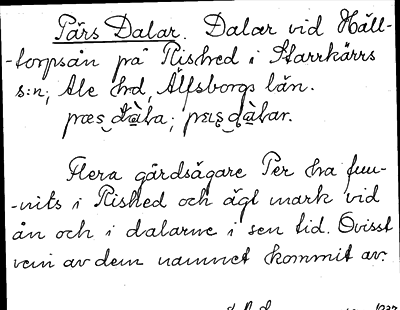 Pärs Dalar. Dalar vid Häll-
-torpsån på Rished i Starrkärrs
s:n, Ale hd, Älfsborgs län.
Flera gårdsägare Per ha fun-
-nits i Rished och ägt mark vid
ån och i dalarne i sen tid. Ovisst
vem av dem namnet kommit av.